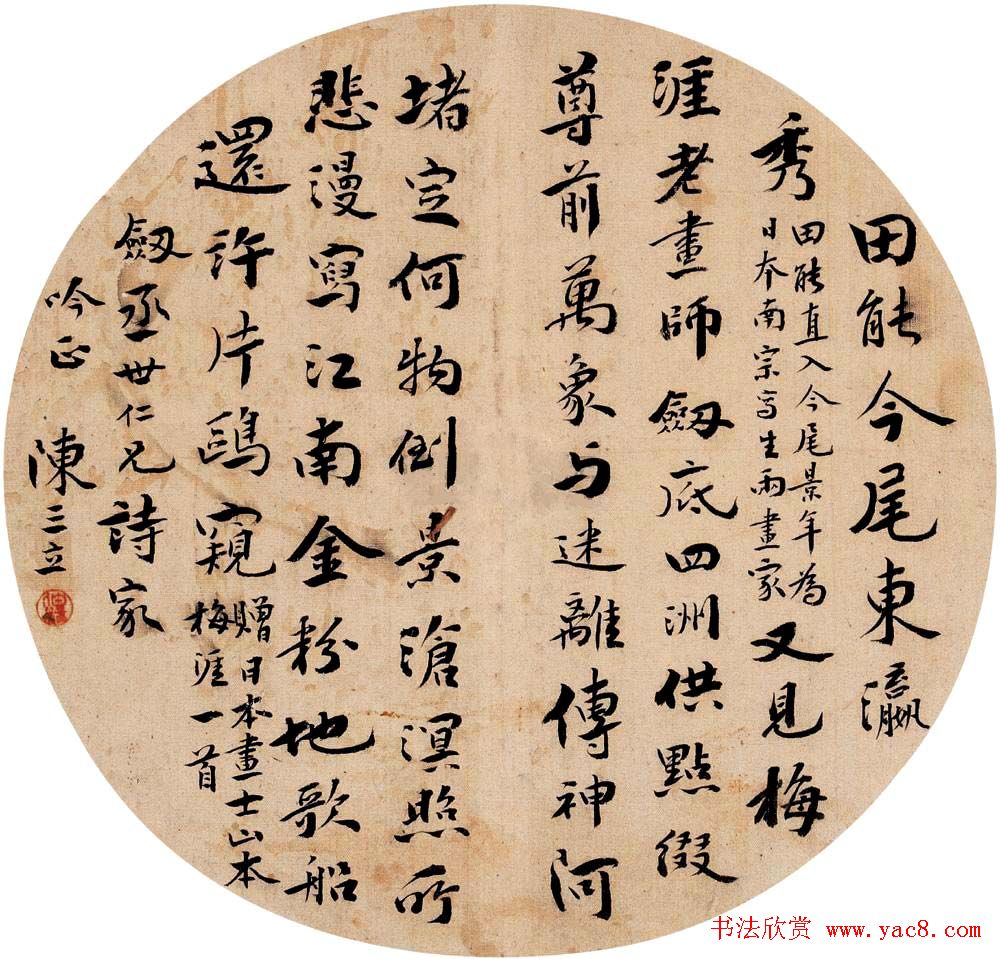 田能今尾東瀛
秀
田能直入今尾景年為
日本南宗寫生兩畫家
又見梅
涯老畫師劔底四洲供點綴
尊前萬象与迷離傳神阿
堵定何物倒景滄溟照所
悲漫寫江南金粉地歌船
還許片鷗窺
贈日本畫士山本
梅涯一首
劔丞世仁兄詩家
吟正 陳三立
书法欣赏 www.yac8.com